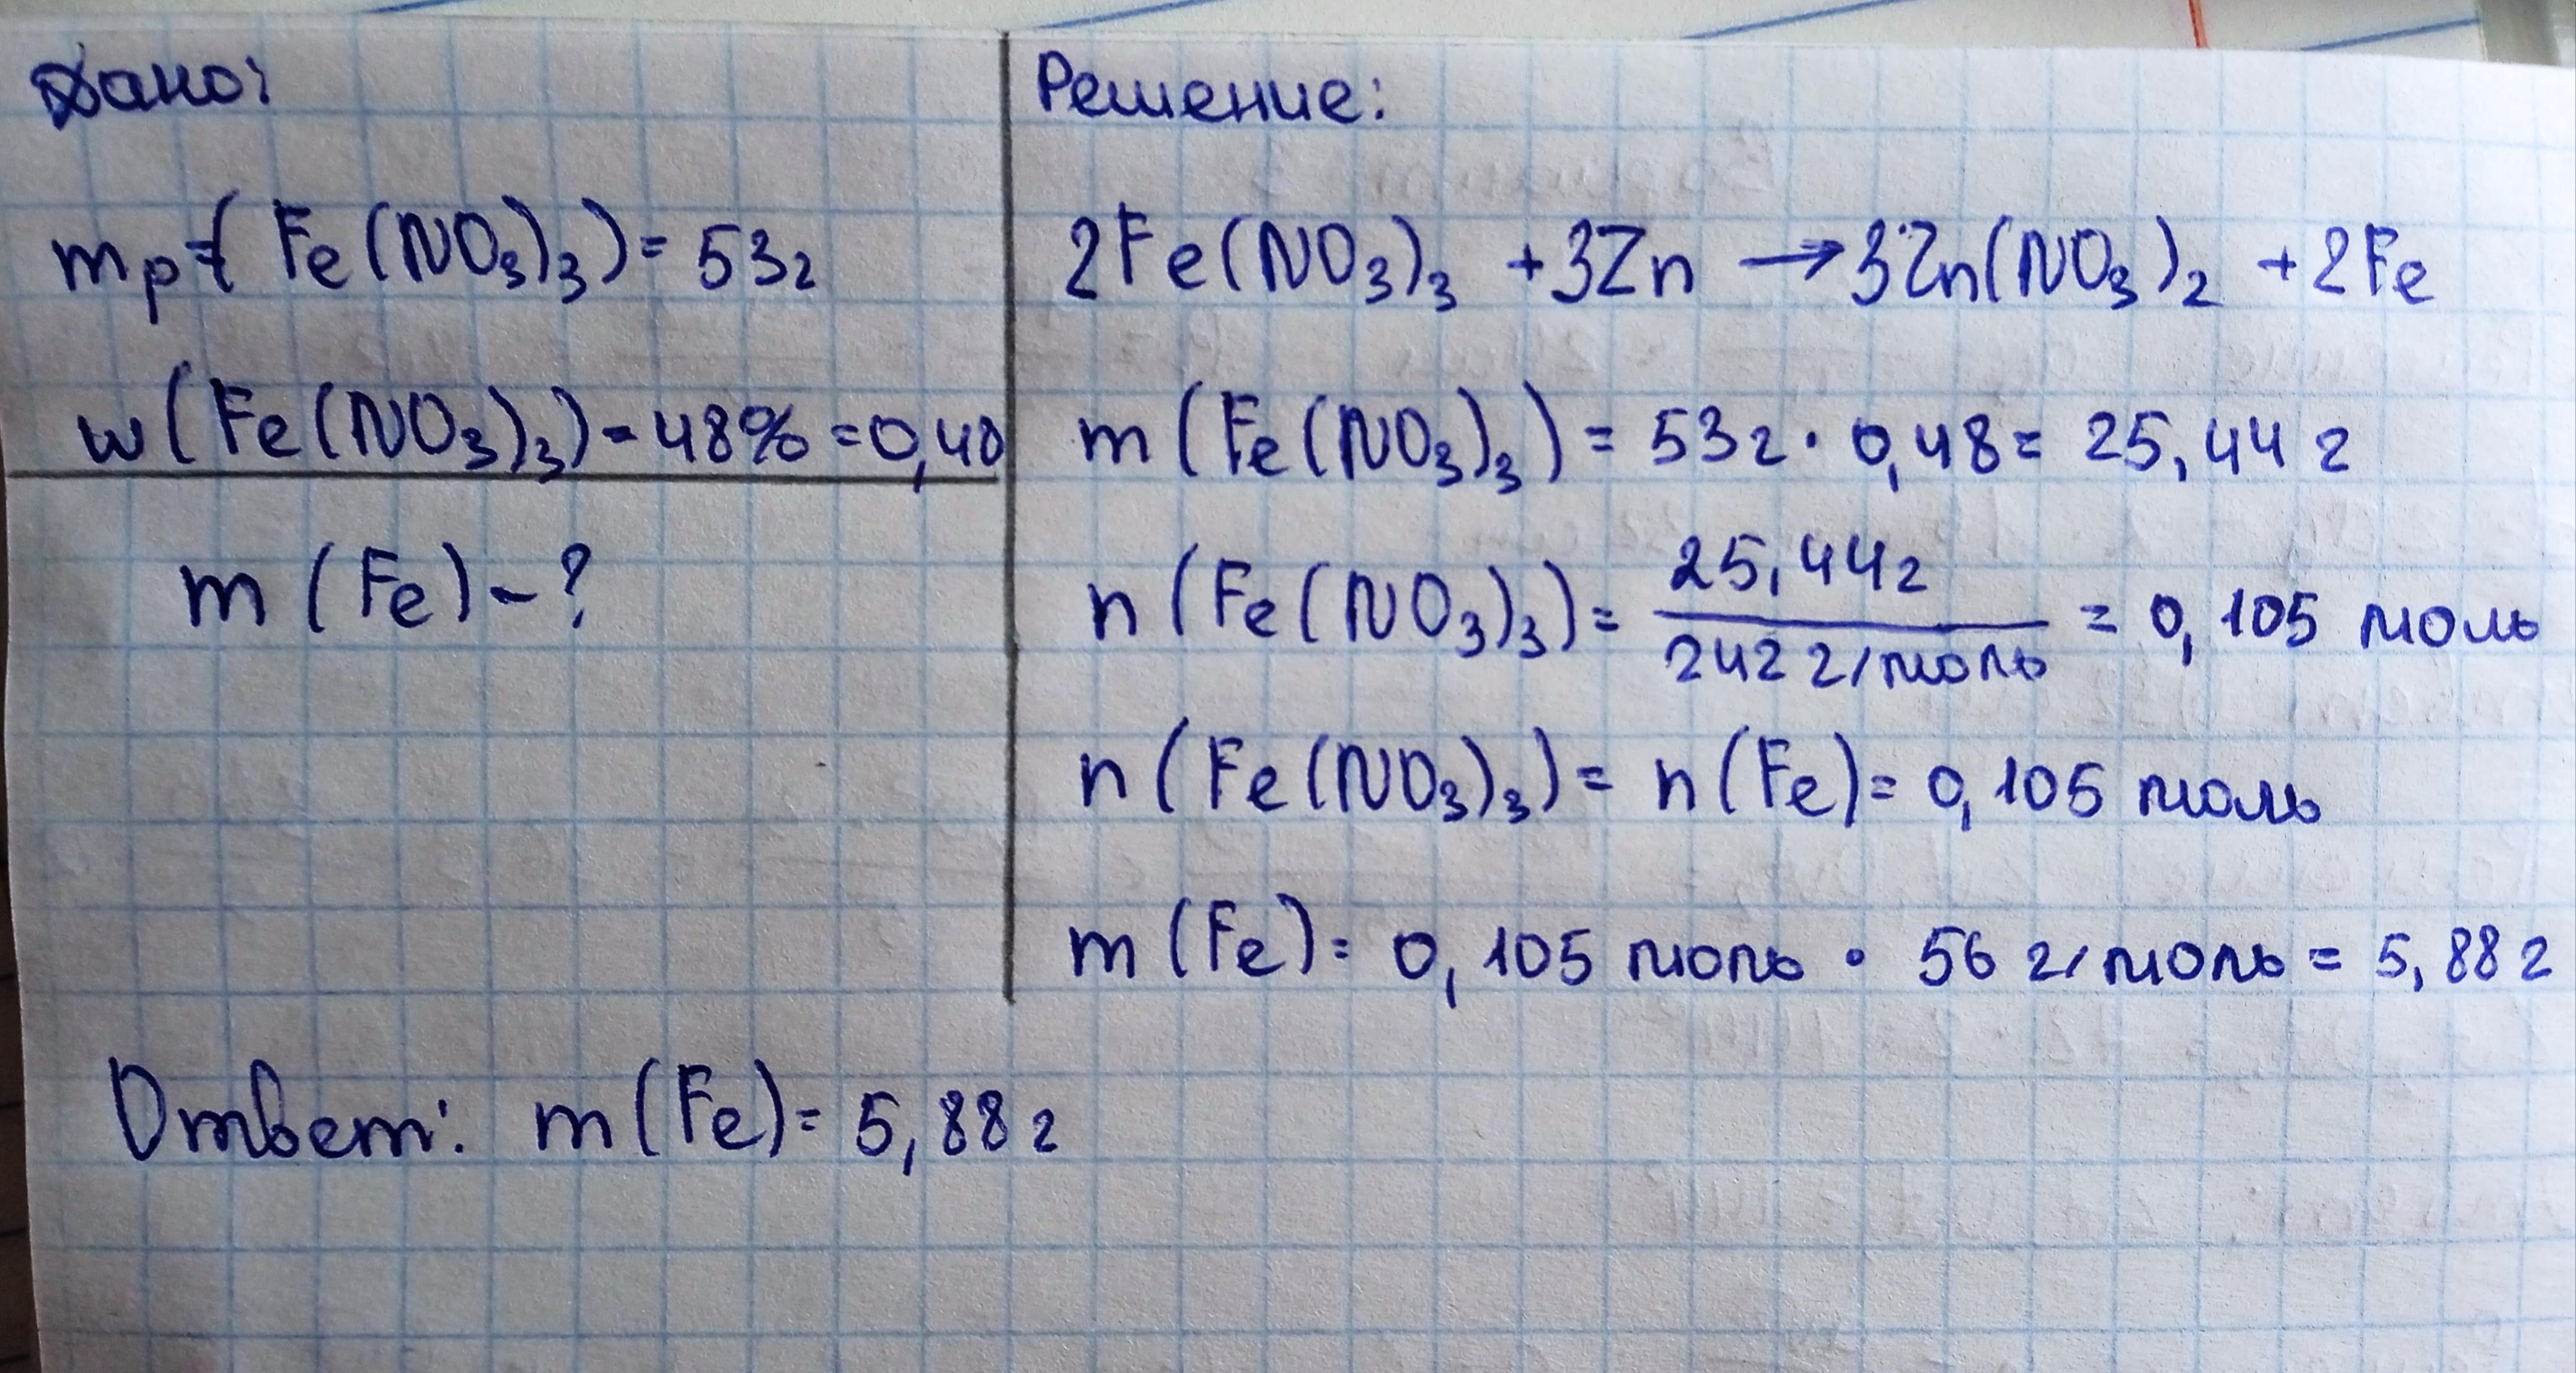 Дано:
mр-(Fe(NO₃)₃)= 53г
w(Fe(NO₃)₃)-48%=0,48
m(Fe)-?
Решение:
2Fe(NO₃)₃ +3Zn → 3Zn(NO₃)₂ +2Fe
m(Fe(NO₃)₃) = 53г · 0,48= 25,44 г
n(Fe(NO₃)₃)= 25,44г / 242 г/моль = 0,105 моль
n(Fe(NO₃)₃)= n(Fe)= 0,105 моль
m(Fe)= 0,105 моль · 56 г/моль = 5,88г
Ответ: m(Fe)= 5,88г